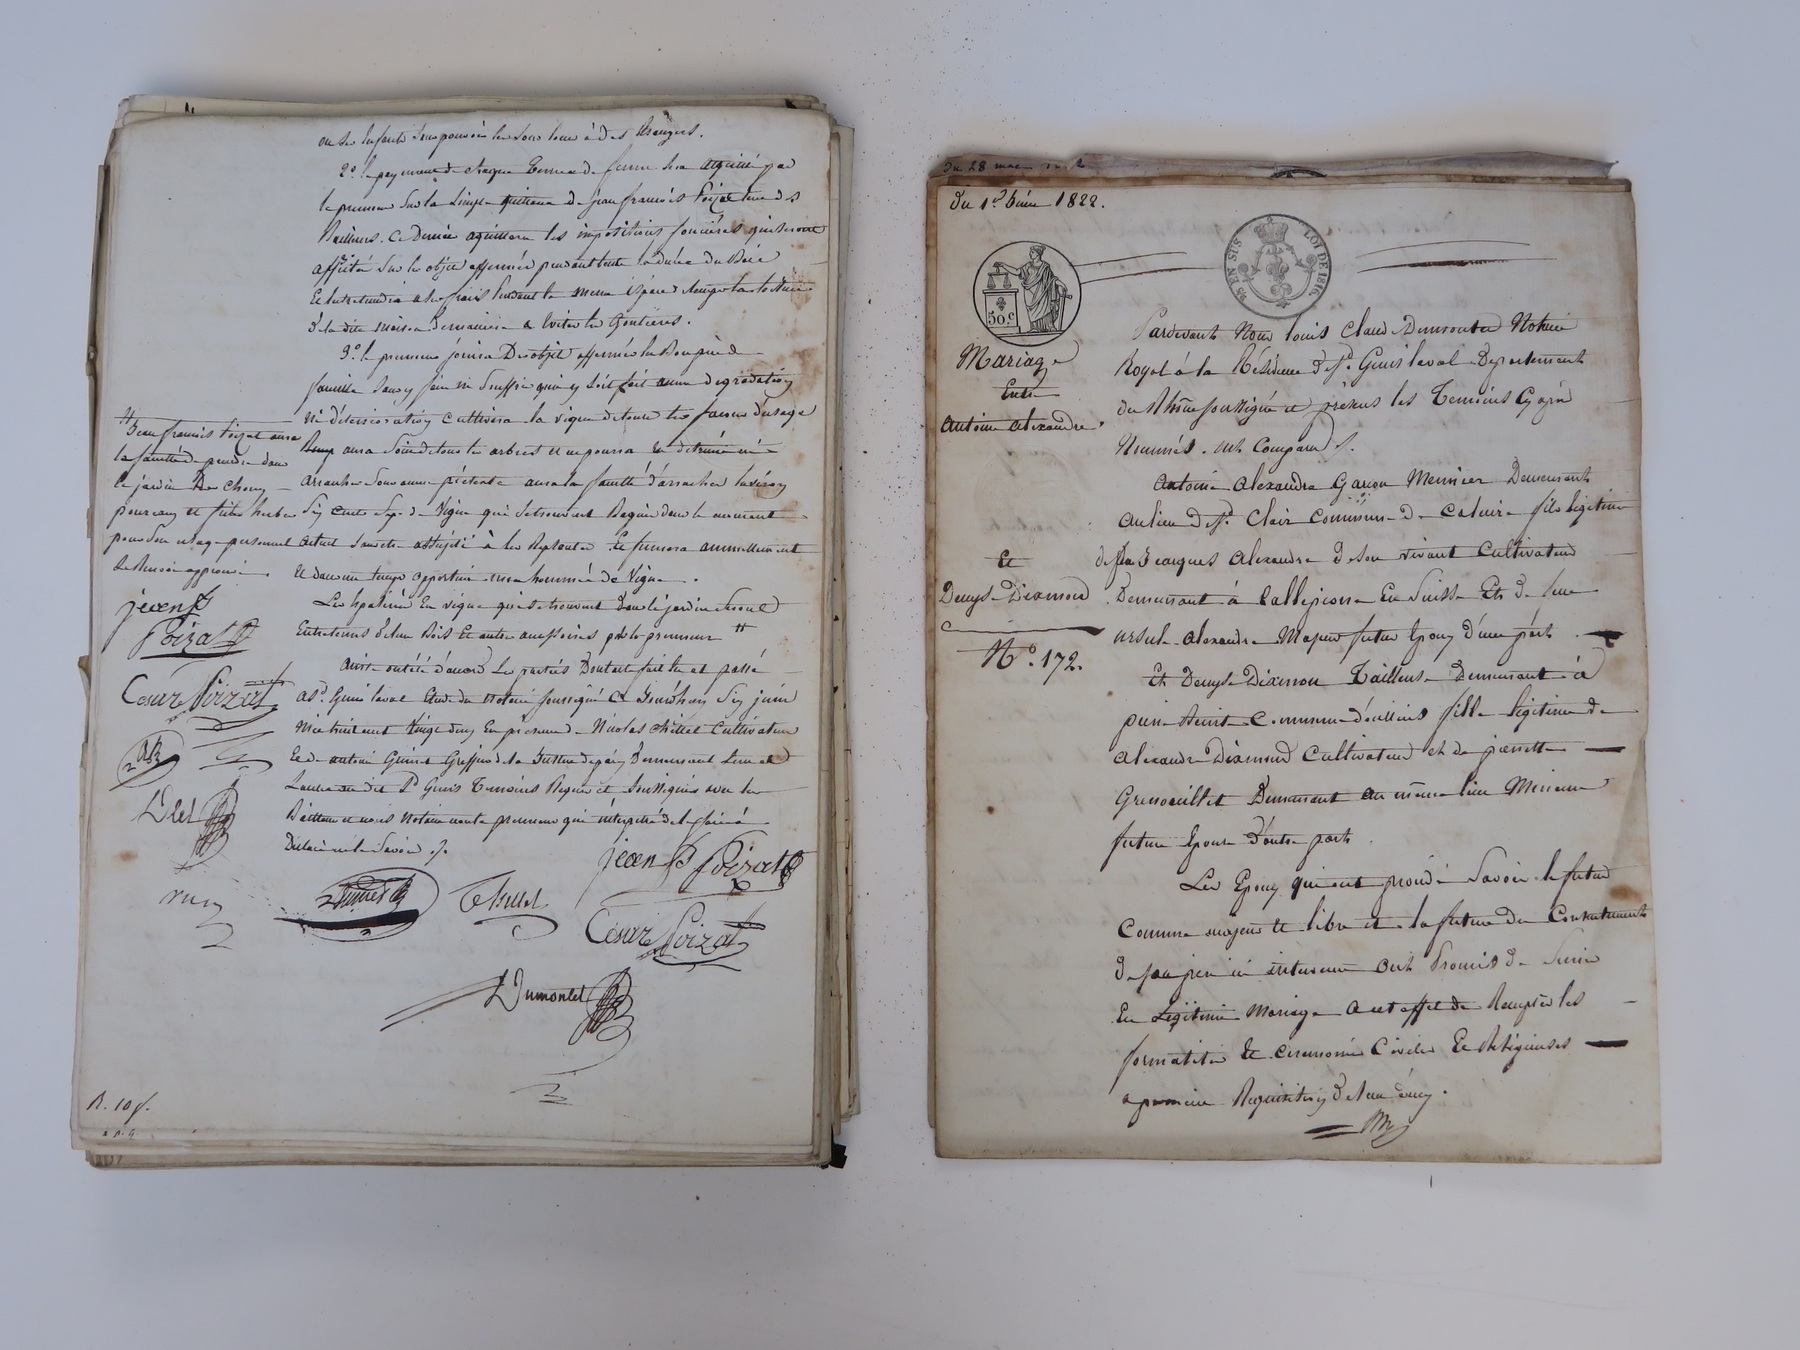 ou ses Enfants sans pouvoir les sous louer à des Etrangers.
2.° le payement de chaque Terme de ferme sera acquitté par
le preneur sur la simple quittance de jean françois Poizat l'un des
Bailleurs. Ce dernier acquittera les impositions foncières qui seront
affectées sur les objets affermés pendant toute la durée du Bail
Et Entretiendra à ses frais pendant le même espace de temps la toiture
de la dite maison de manière à Eviter les Goutières.
3.° le preneur jouira Des objets affermés En Bon père de
famille sans y faire ni Souffrir qu'il y soit fait aucune dégradation
ni déterioration, cultivera la vigne de toutes les façons d'usage
aura Soin de tous les arbres et ne pourra en
arracher Sous aucun prétexte aura la faculté d'arracher Environ
Six Cents Seps de Vigne qui se trouvent dans le moment
actuel Sans être assujeti à les Replanter. Il fumera annuellement
Et dans un temps opportun une hommée de Vigne.
Les Espaliers En vigne qui se trouvent Dans le jardin Seront
Entretenus de leur Bois Et autres accessoires par le preneur #
Ainsi convenu d'accord Les parties Dont acte fait lu et passé
à S.t Genis laval Etude du notaire soussigné Ce Six juin
Mil huit cent Vingt deux En présence de Nicolas Thillet Cultivateur
Et de antoine Greffier de la Justice de paix Demeurant L'un et
L'autre au dit S.t Genis Témoins Requis et Soussignés avec les
Bailleurs et nous Notaire non le preneur qui interpellé de le faire a
Déclaré ne le Savoir ./.
# Jean françois Poizat aura
la faculté de prendre dans
le jardin Des Choux
poireaux et autres herbes
pour Son usage personnel
Le Renvoi approuvé
jean f
Poizat
Cesar Poizat
jean f Poizat
Thillet
Cesar Poizat
Dumontet
R. 10 f.
Du 28 mai
Du 1.er juin 1822.
50.c
EN SUS
LOI DE 1816.
Mariage
Entre
Antoine alexandre
Et
Denyse Dixmond
N.° 172.
Pardevant Nous louis Claude Dumontet Notaire
Royal à la Résidence de S.t Genis laval Département
du Rhône soussigné et présens les Témoins Cy après
Nommés. ont Comparu ./.
Antoine Alexandre Garçon Meunier Demeurant
au lieu de S.t Clair Commune de Caluire fils légitime
de feu Jeacques Alexandre De son vivant Cultivateur
Demeurant à En Suisse Et de feue
ursule Alexandre Majeur futur Epoux d'une part
Et Denyse Dixmon Tailleuse Demeurant à
pierre Benite Commune d'oullins fille légitime de
Alexandre Dixmond Cultivateur et de pierrette
Grenouillet Demeurant au même lieu Mineure
future Epouse D'autre part.
Les Epoux qui ont procédé Savoir le futur
Comme majeur et libre et la future du Consentement
De son père ici intervenu ont Promis de S'unir
En Légitime Mariage à cet effet de Remplir les
formalités Et cérémonies Civiles Et Religieuses
a première Requisition de l'un d'eux.